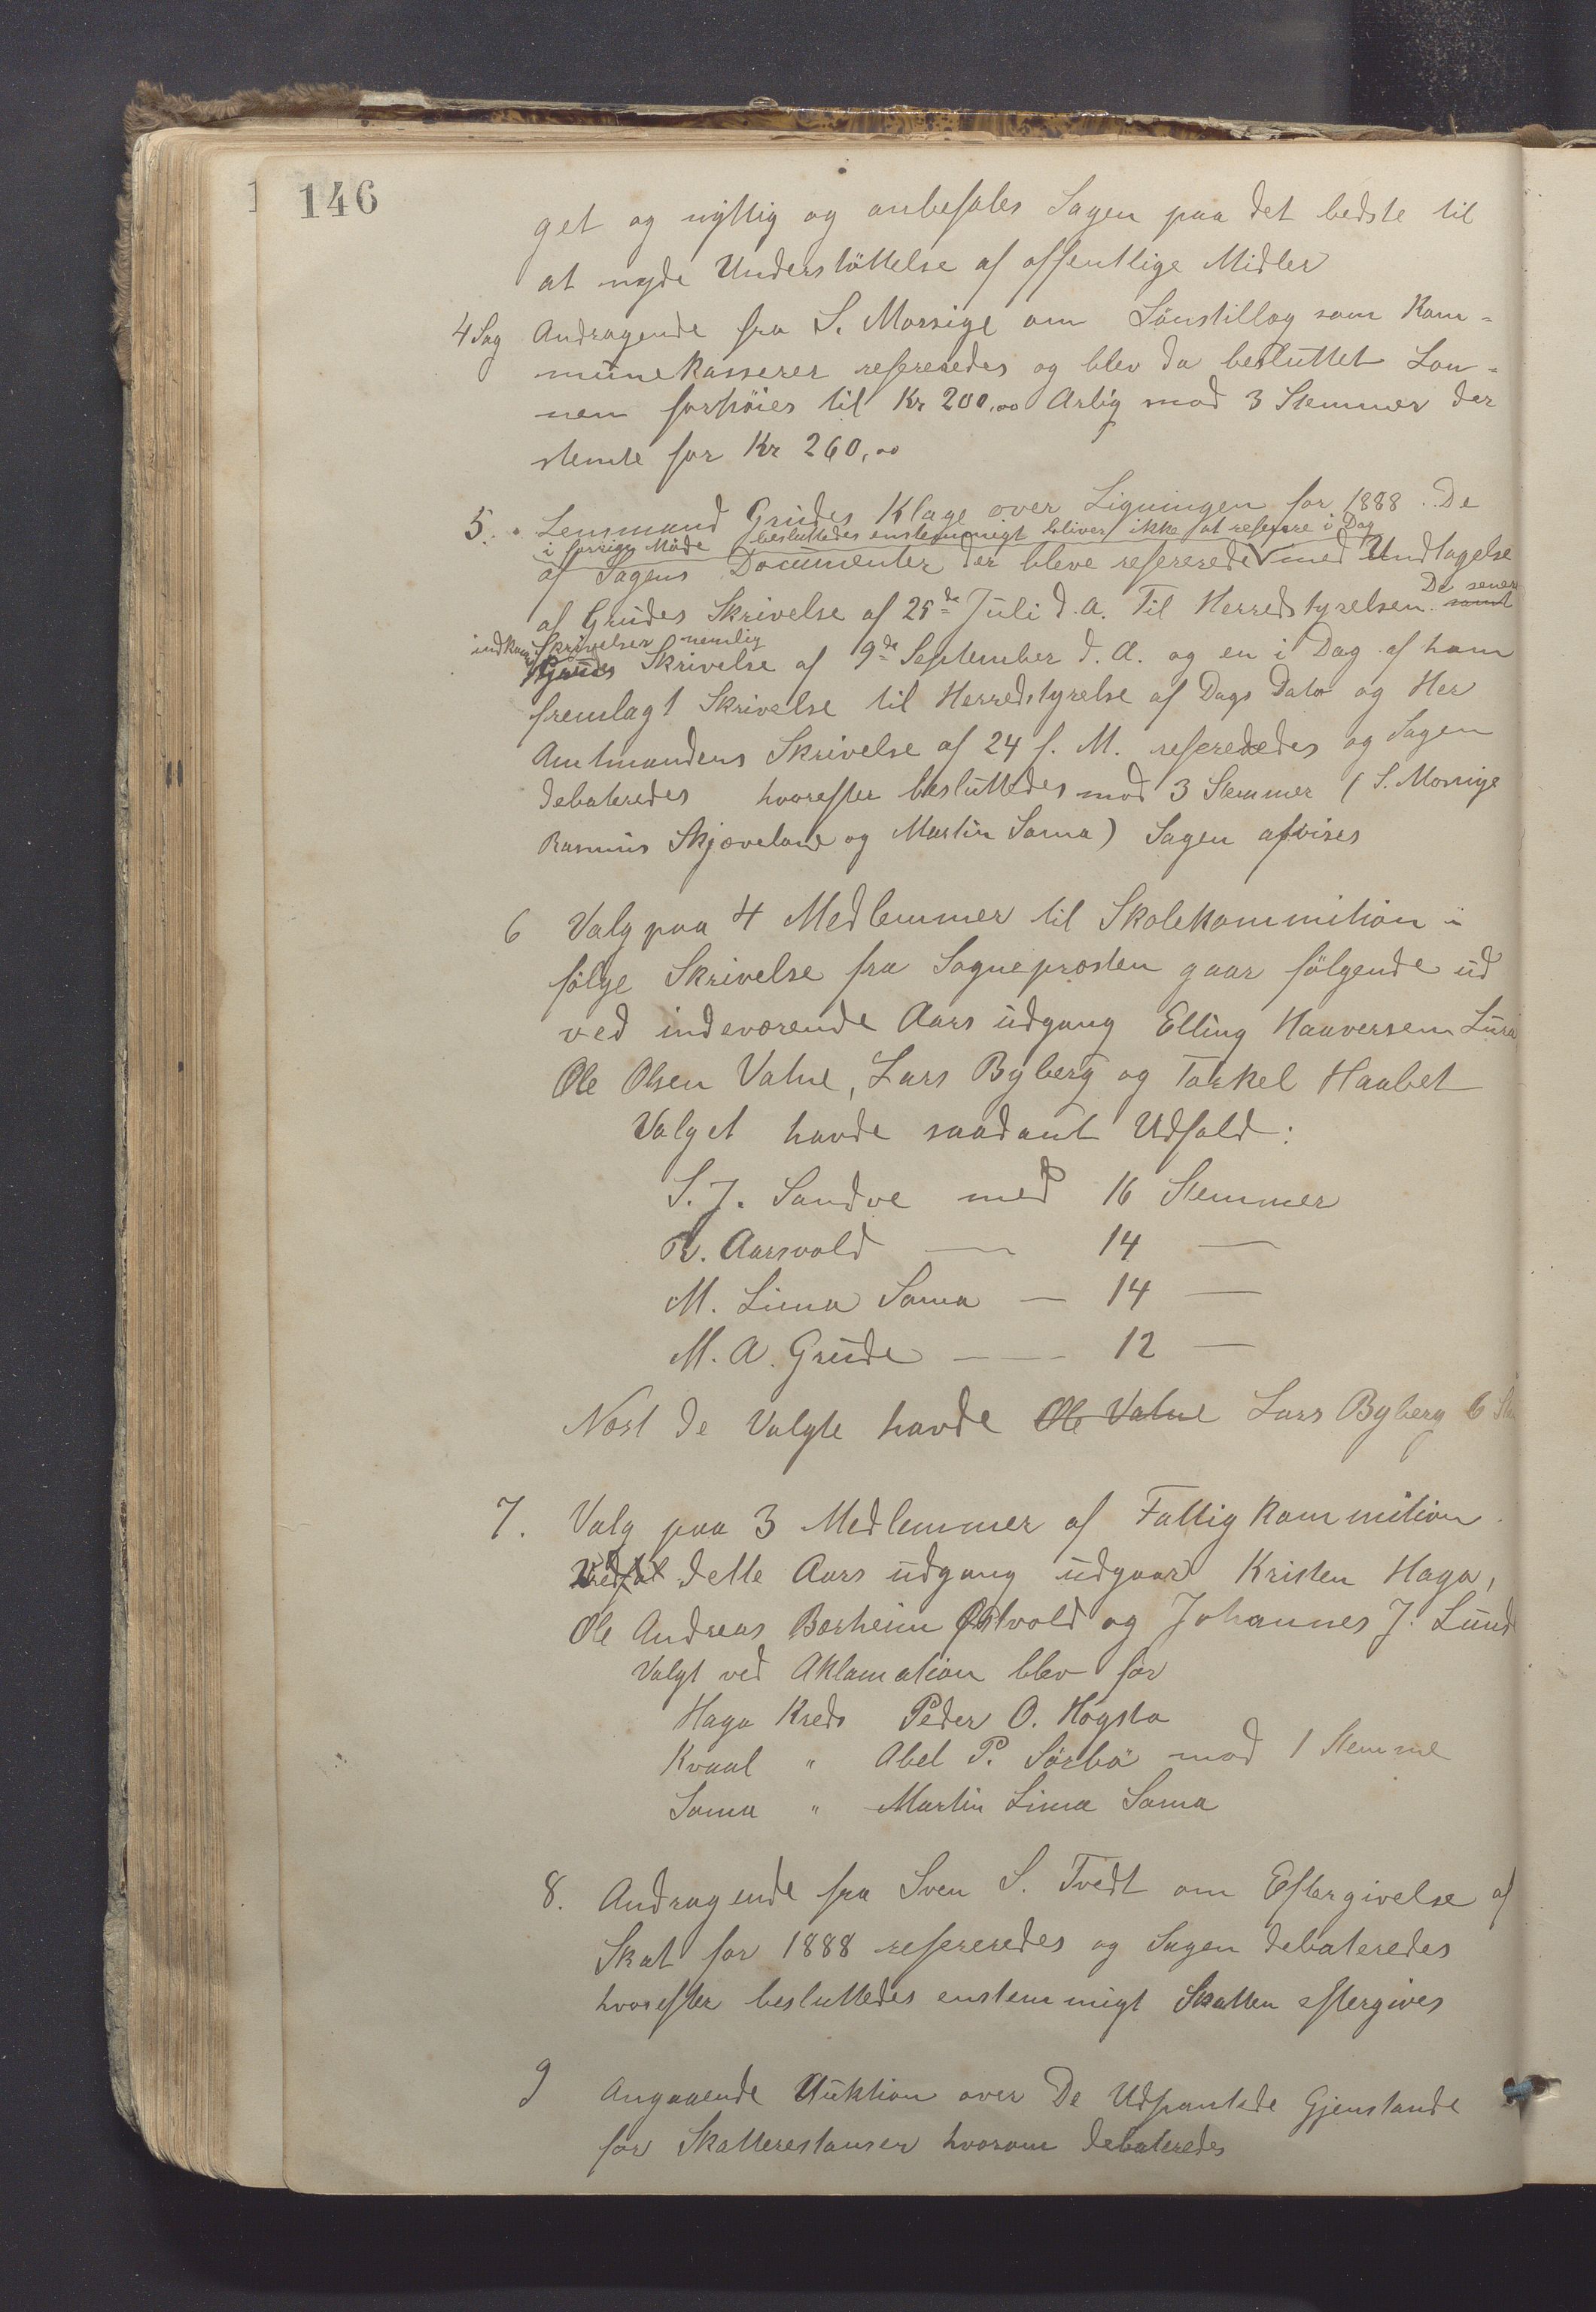 146
get og nyttig og anbefales Sagen paa det bedste til
at nyde Understöttelse af offentlige Midler
4 Sag Andragende fra S. Morsige om Lönstillæg som Kom-
munekasserer refereredes og blev da besluttet Løn-
nen forhöies til Kr 200,00 Arlig mod 3 Stemmer der
stemte for Kr 260,00
5. Lensmand Grudes Klage over Ligningen for 1888. De
i forrige Möde besluttedes enstemmigt bliver ikke at refere i Dag
af Sagens Documenter der bleve refererede med Undtagelse
af Grudes Skrivelse af 25de Juli d. A. Til Herredstyrelsen. De senere samt
indkomne Skrivelser nemlig
Grudes Skrivelse af 9de September d. A. og en i Dag af ham
fremlagt Skrivelse til Herredstyrelse af Dags Dato og Her
Amtmandens Skrivelse af 24 f. M. refereredes og Sagen
debateredes hvorefter besluttedes mod 3 Stemmer (S. Morsige
Rasmus Skjæveland og Martin Soma) Sagen afvises
6 Valg paa 4 Medlemmer til Skolekommition i
følge Skrivelse fra Sogneprosten gaar fölgende ud
ved indeværende Aars udgang Elling Haaversem Lura
Ole Olsen Vatne, Lars Byberg og Torkel Haabet
Valget havde saadant Udfald:
S. J. Sandve med 16 Stemmer
R. Aarsvold — 14 —
M. Lima Soma — 14 —
M. A. Grude — 12 —
Næst de Valgte havde Ole Vatne Lars Byberg 6 St
7. Valg paa 3 Medlemmer af Fattigkommition.
Ved dette Aars udgang udgaar Kristen Haga,
Ole Andreas Børheim Østvold og Johannes J. Lund
Valgt ved Aklamation blev for
Haga Kreds Peder O. Høgsta
Kvaal " Abel P. Sörbö mod 1 Stemme
Soma " Martin Lima Soma
8. Andragende fra Sven S. Tvedt om Eftergivelse af
Skat for 1888 refereredes og Sagen debateredes
hvorefter besluttedes enstemmigt Skatten eftergives
9 Angaaende Auktion over De Udpantede Gjenstande
for Skatterestanser hvorom debateredes